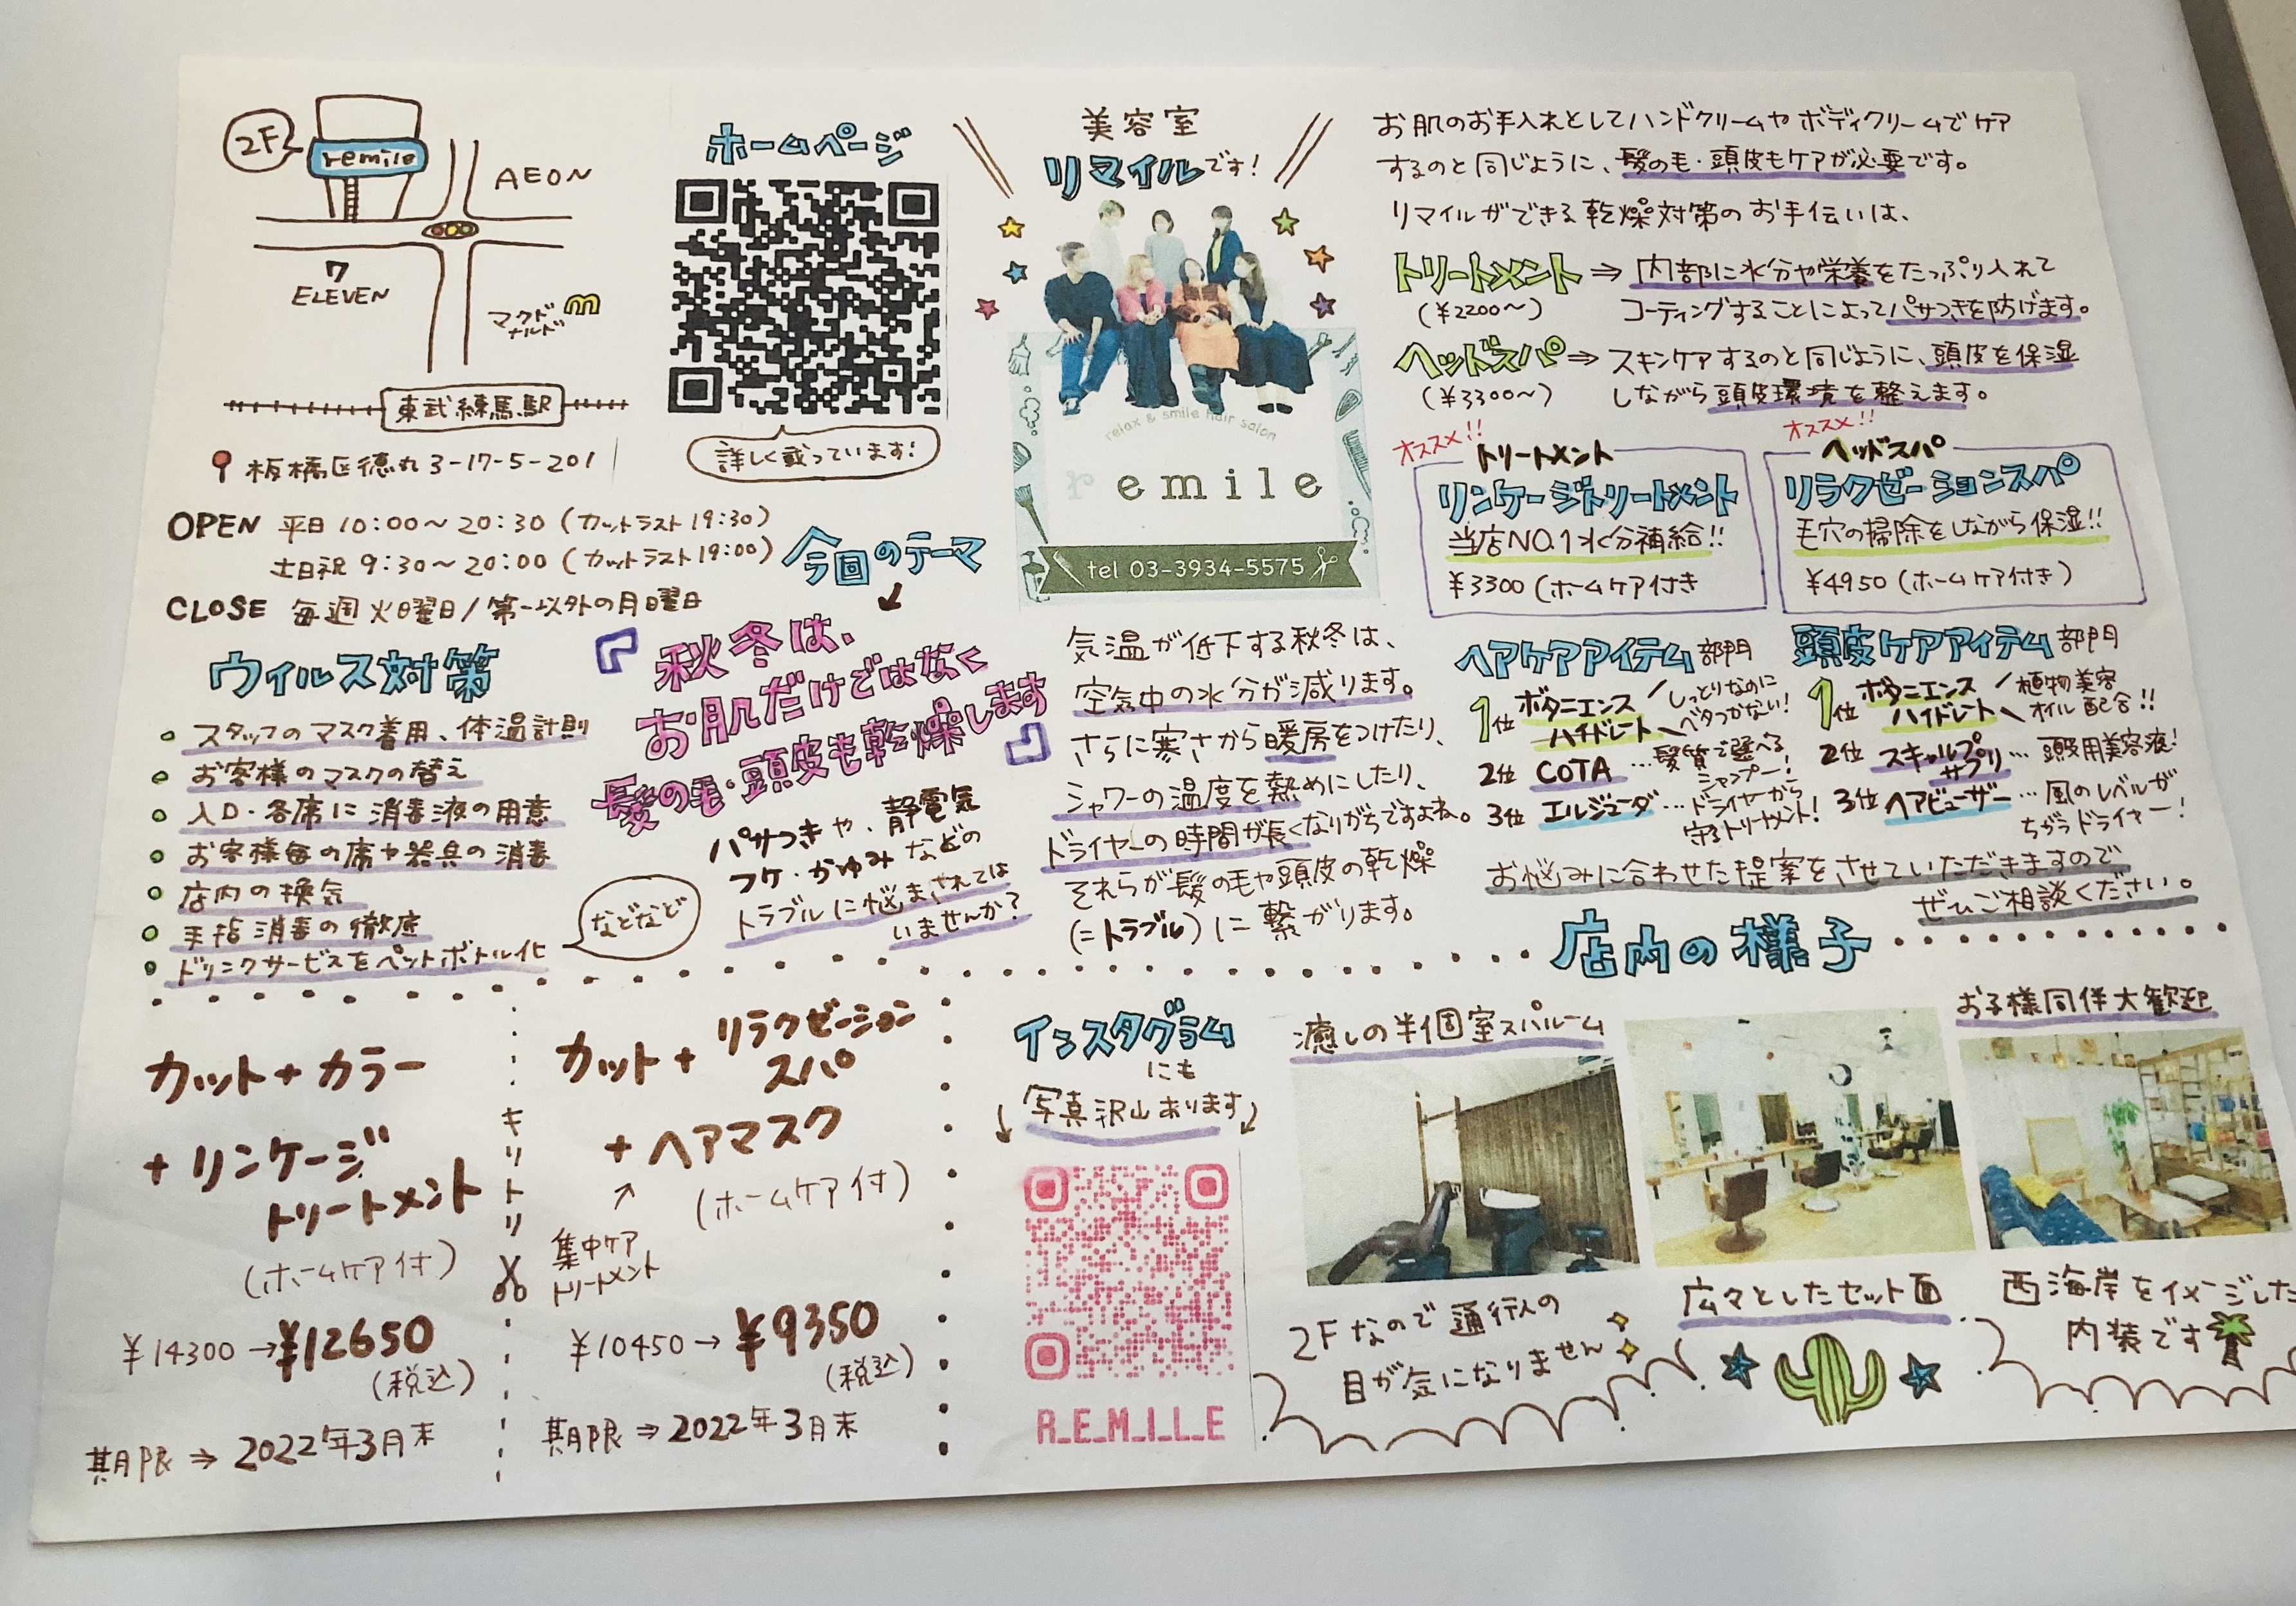 2F
remile
AEON
7
ELEVEN
マクド
ナルド
東武練馬駅
板橋区徳丸3-17-5-201
OPEN 平日 10:00〜20:30 (カットラスト19:30)
土日祝 9:30〜20:00 (カットラスト19:00)
CLOSE 毎週火曜日/第一以外の月曜日
ホームページ
詳しく載っています!
美容室
リマイルです!
relax & smile hair salon
remile
tel 03-3934-5575
ウィルス対策
スタッフのマスク着用、体温計則
お客様のマスクの替え
入口・各席に消毒液の用意
お客様毎の席や器具の消毒
店内の換気
手指消毒の徹底
ドリンクサービスをペットボトル化
などなど
今回のテーマ
『秋冬は、
お肌だけではなく
髪の毛・頭皮も乾燥します』
パサつきや、静電気
フケ・かゆみなどの
トラブルに悩まされては
いませんか?
気温が低下する秋冬は、
空気中の水分が減ります。
さらに寒さから暖房をつけたり、
シャワーの温度を熱めにしたり、
ドライヤーの時間が長くなりがちですよね。
それらが髪の毛や頭皮の乾燥
(=トラブル)に繋がります。
お肌のお手入れとしてハンドクリームやボディクリームでケア
するのと同じように、髪の毛・頭皮もケアが必要です。
リマイルができる乾燥対策のお手伝いは、
トリートメント ⇒ 内部に水分や栄養をたっぷり入れて
(¥2200〜) コーティングすることによってパサつきを防げます。
ヘッドスパ ⇒ スキンケアするのと同じように、頭皮を保湿
(¥3300〜) しながら頭皮環境を整えます。
オススメ!!
トリートメント
リンケージトリートメント
当店NO.1水分補給!!
¥3300(ホームケア付き
オススメ!!
ヘッドスパ
リラクゼーションスパ
毛穴の掃除をしながら保湿!!
¥4950(ホームケア付き)
ヘアケアアイテム部門
1位 ボタニエンス ハイドレート
しっとりなのに
ベタつかない!
2位 COTA … 髪質で選べる
シャンプー!
3位 エルジューダ … ドライヤーから
守るトリートメント!
頭皮ケアアイテム部門
1位 ボタニエンス ハイドレート
植物美容
オイル配合!!
2位 スキャルプ サプリ … 頭皮用美容液!
3位 ヘアビューザー … 風のレベルが
ちがうドライヤー!
お悩みに合わせた提案をさせていただきますので
ぜひご相談ください。
カット+カラー
+リンケージ
トリートメント
(ホームケア付)
¥14300→¥12650
(税込)
期限⇒2022年3月末
キリトリ
カット+リラクゼーション
スパ
+ヘアマスク
(ホームケア付)
集中ケア
トリートメント
¥10450→¥9350
(税込)
期限⇒2022年3月末
インスタグラム
にも
写真沢山あります
R_E_M_I_L_E
店内の様子
癒しの半個室スパルーム
お子様同伴大歓迎
2Fなので通行人の
目が気になりません
広々としたセット面
西海岸をイメージした
内装です